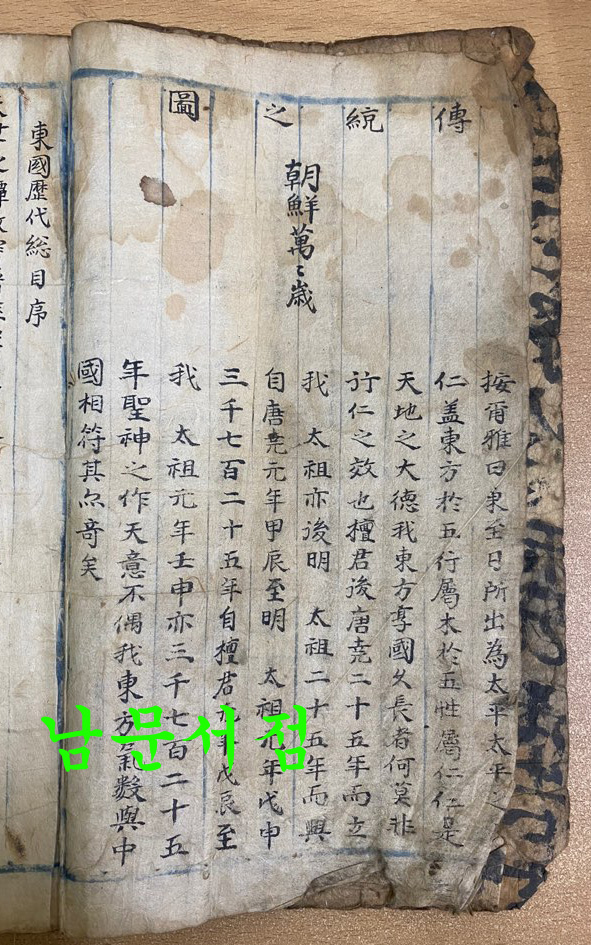 傳統之圖
朝鮮萬〻歲
按爾雅曰東至日所出為太平太平之
仁盖東方於五行屬木於五性屬仁仁是
天地之大德我東方享國久長者何莫非
行仁之效也檀君後唐堯二十五年而立
我 太祖亦後明 太祖二十五年而興
自唐堯元年甲辰至明 太祖元年戊申
三千七百二十五年自檀君元年戊辰至
我 太祖元年壬申亦三千七百二十五
年聖神之作天意不偶我東方氣數與中
國相符其亦奇矣
東國歷代総目序
남문서점